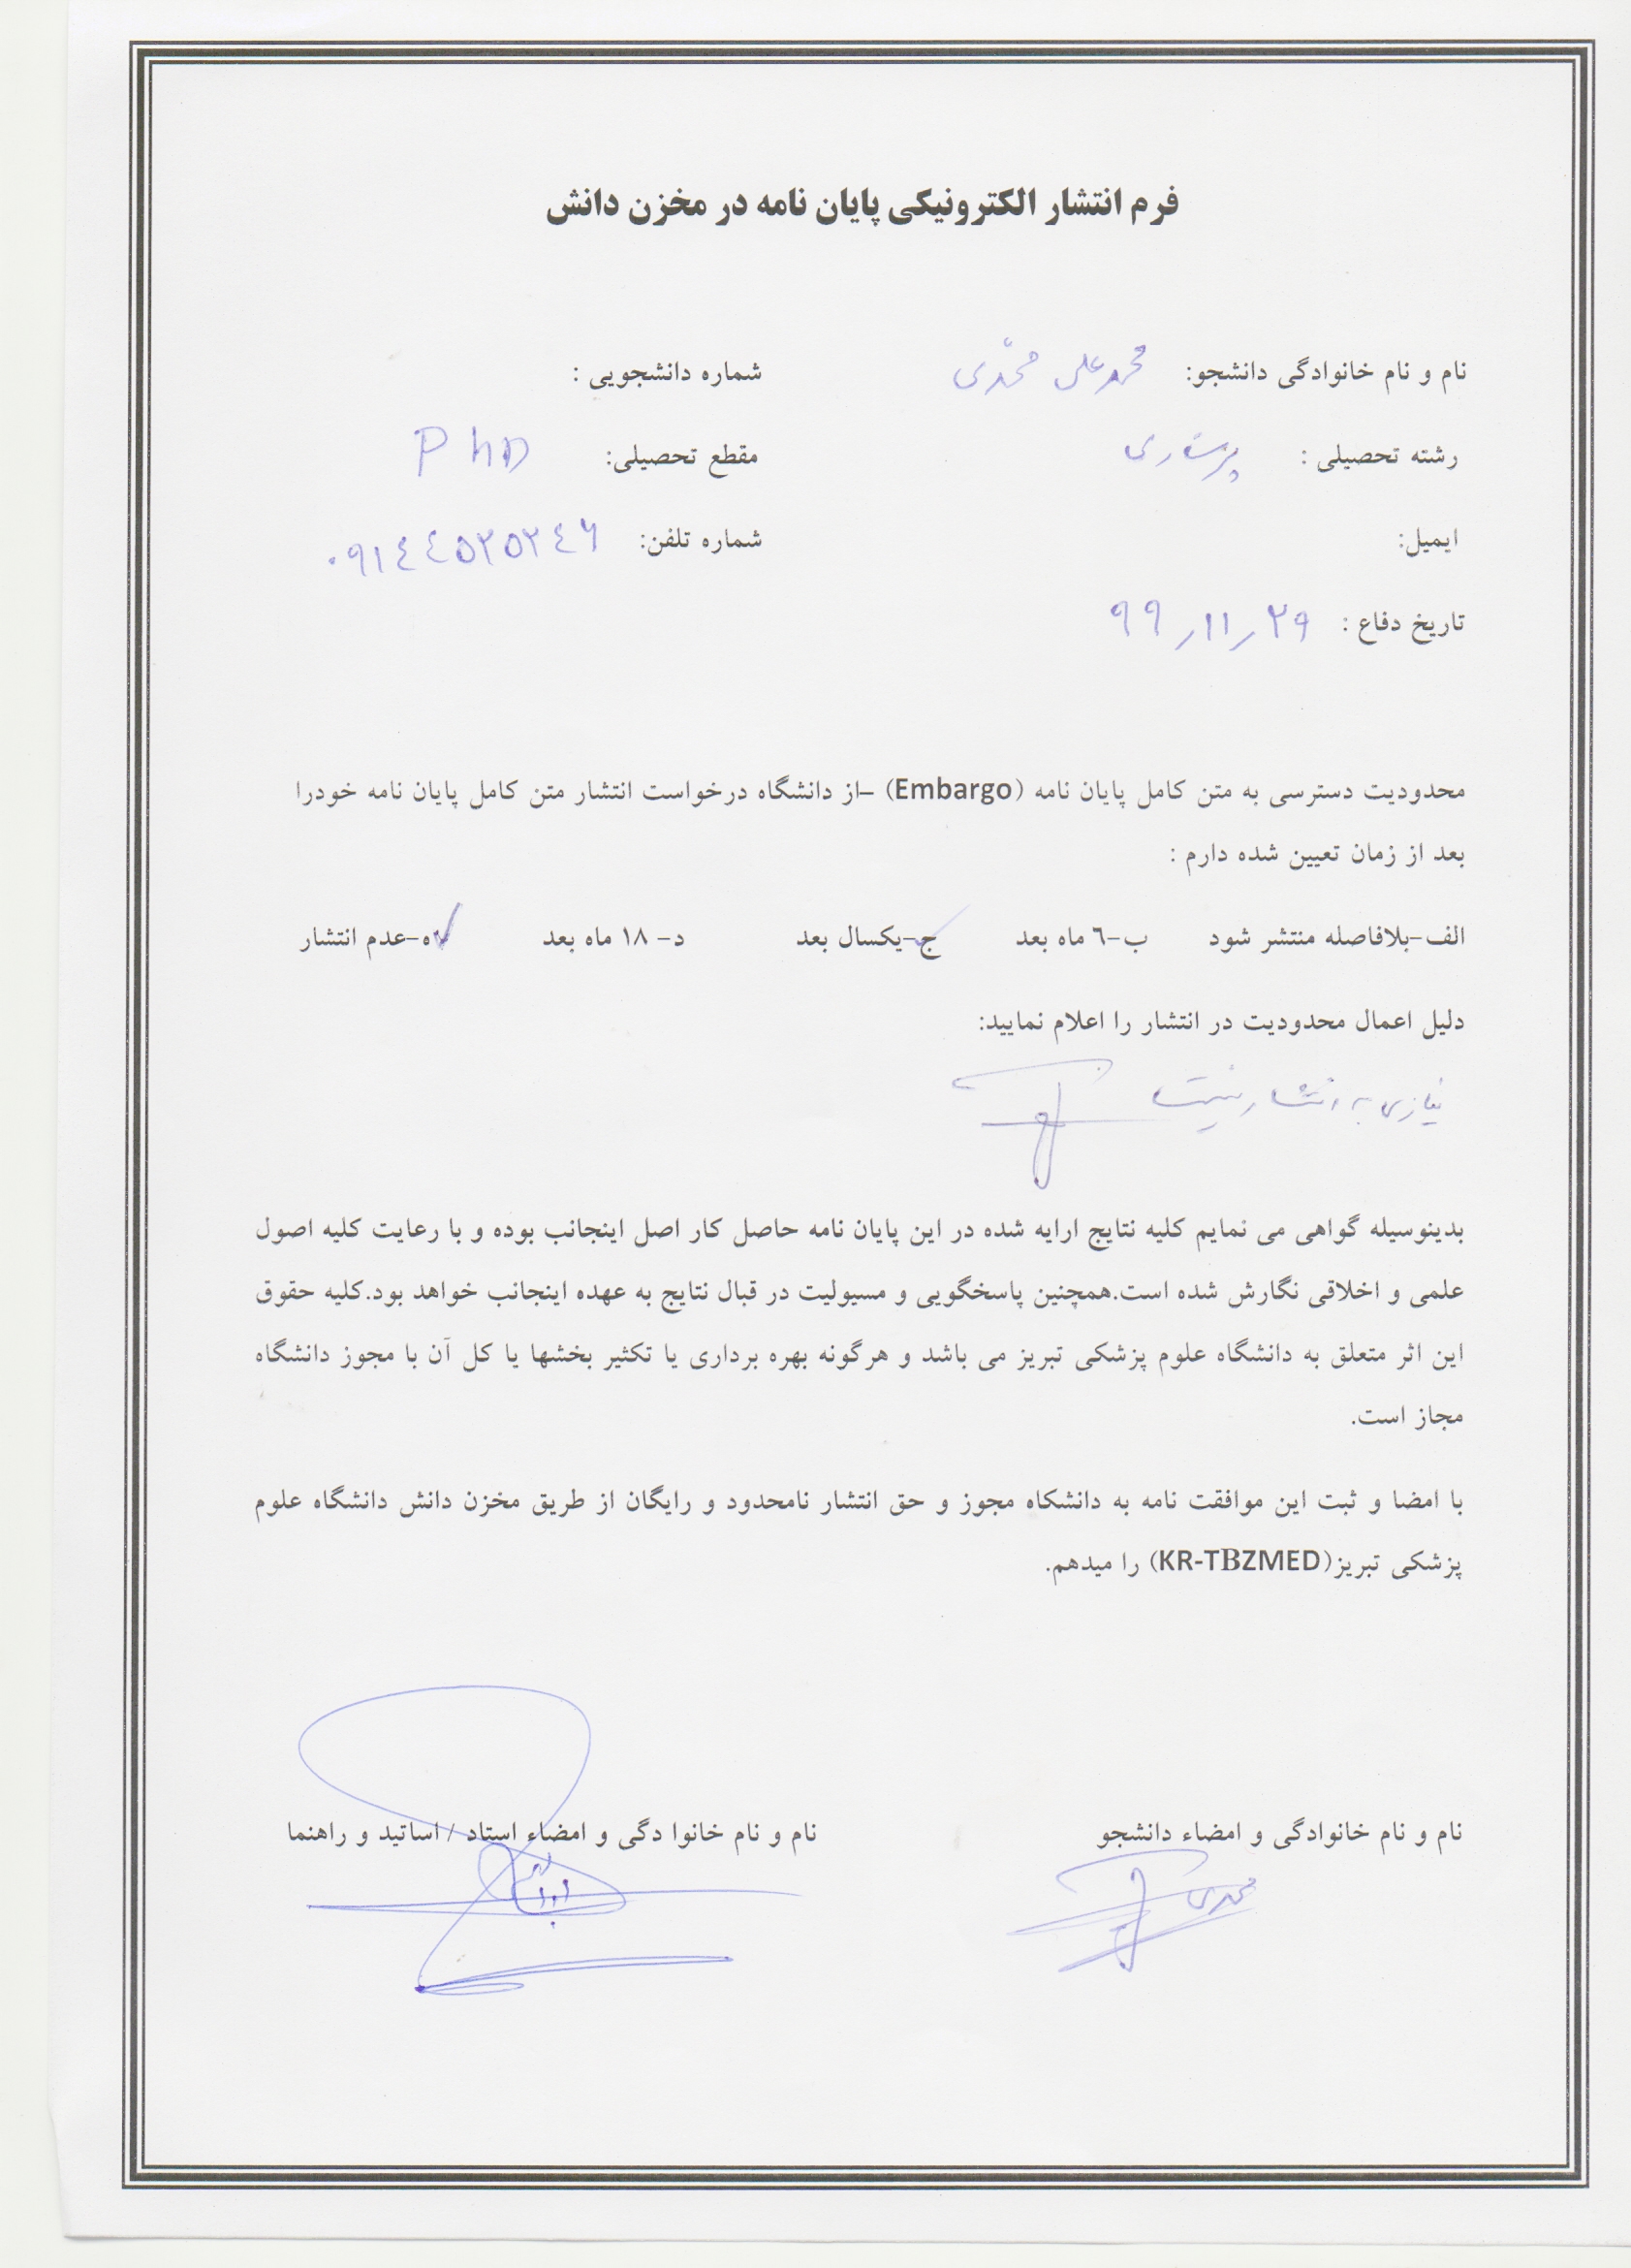 فرم انتشار الکترونیکی پایان نامه در مخزن دانش
نام و نام خانوادگی دانشجو: محمدعلی محمدی شماره دانشجویی :
رشته تحصیلی : پرستاری مقطع تحصیلی: PhD
ایمیل: شماره تلفن: ۰۹۱٤٤۵۲۵۲٤۶
تاریخ دفاع : ۹۹٫۱۱٫۲۹
محدودیت دسترسی به متن کامل پایان نامه (Embargo) –از دانشگاه درخواست انتشار متن کامل پایان نامه خودرا
بعد از زمان تعیین شده دارم :
الف-بلافاصله منتشر شود ب-٦ ماه بعد ج-یکسال بعد د- ۱۸ ماه بعد ه-عدم انتشار
دلیل اعمال محدودیت در انتشار را اعلام نمایید:
نیازی به انتشار نیست
بدینوسیله گواهی می نمایم کلیه نتایج ارایه شده در این پایان نامه حاصل کار اصل اینجانب بوده و با رعایت کلیه اصول
علمی و اخلاقی نگارش شده است.همچنین پاسخگویی و مسیولیت در قبال نتایج به عهده اینجانب خواهد بود.کلیه حقوق
این اثر متعلق به دانشگاه علوم پزشکی تبریز می باشد و هرگونه بهره برداری یا تکثیر بخشها یا کل آن با مجوز دانشگاه
مجاز است.
با امضا و ثبت این موافقت نامه به دانشکاه مجوز و حق انتشار نامحدود و رایگان از طریق مخزن دانش دانشگاه علوم
پزشکی تبریز(KR-TBZMED) را میدهم.
نام و نام خانوادگی و امضاء دانشجو نام و نام خانوا دگی و امضاء استاد / اساتید و راهنما
محمدی